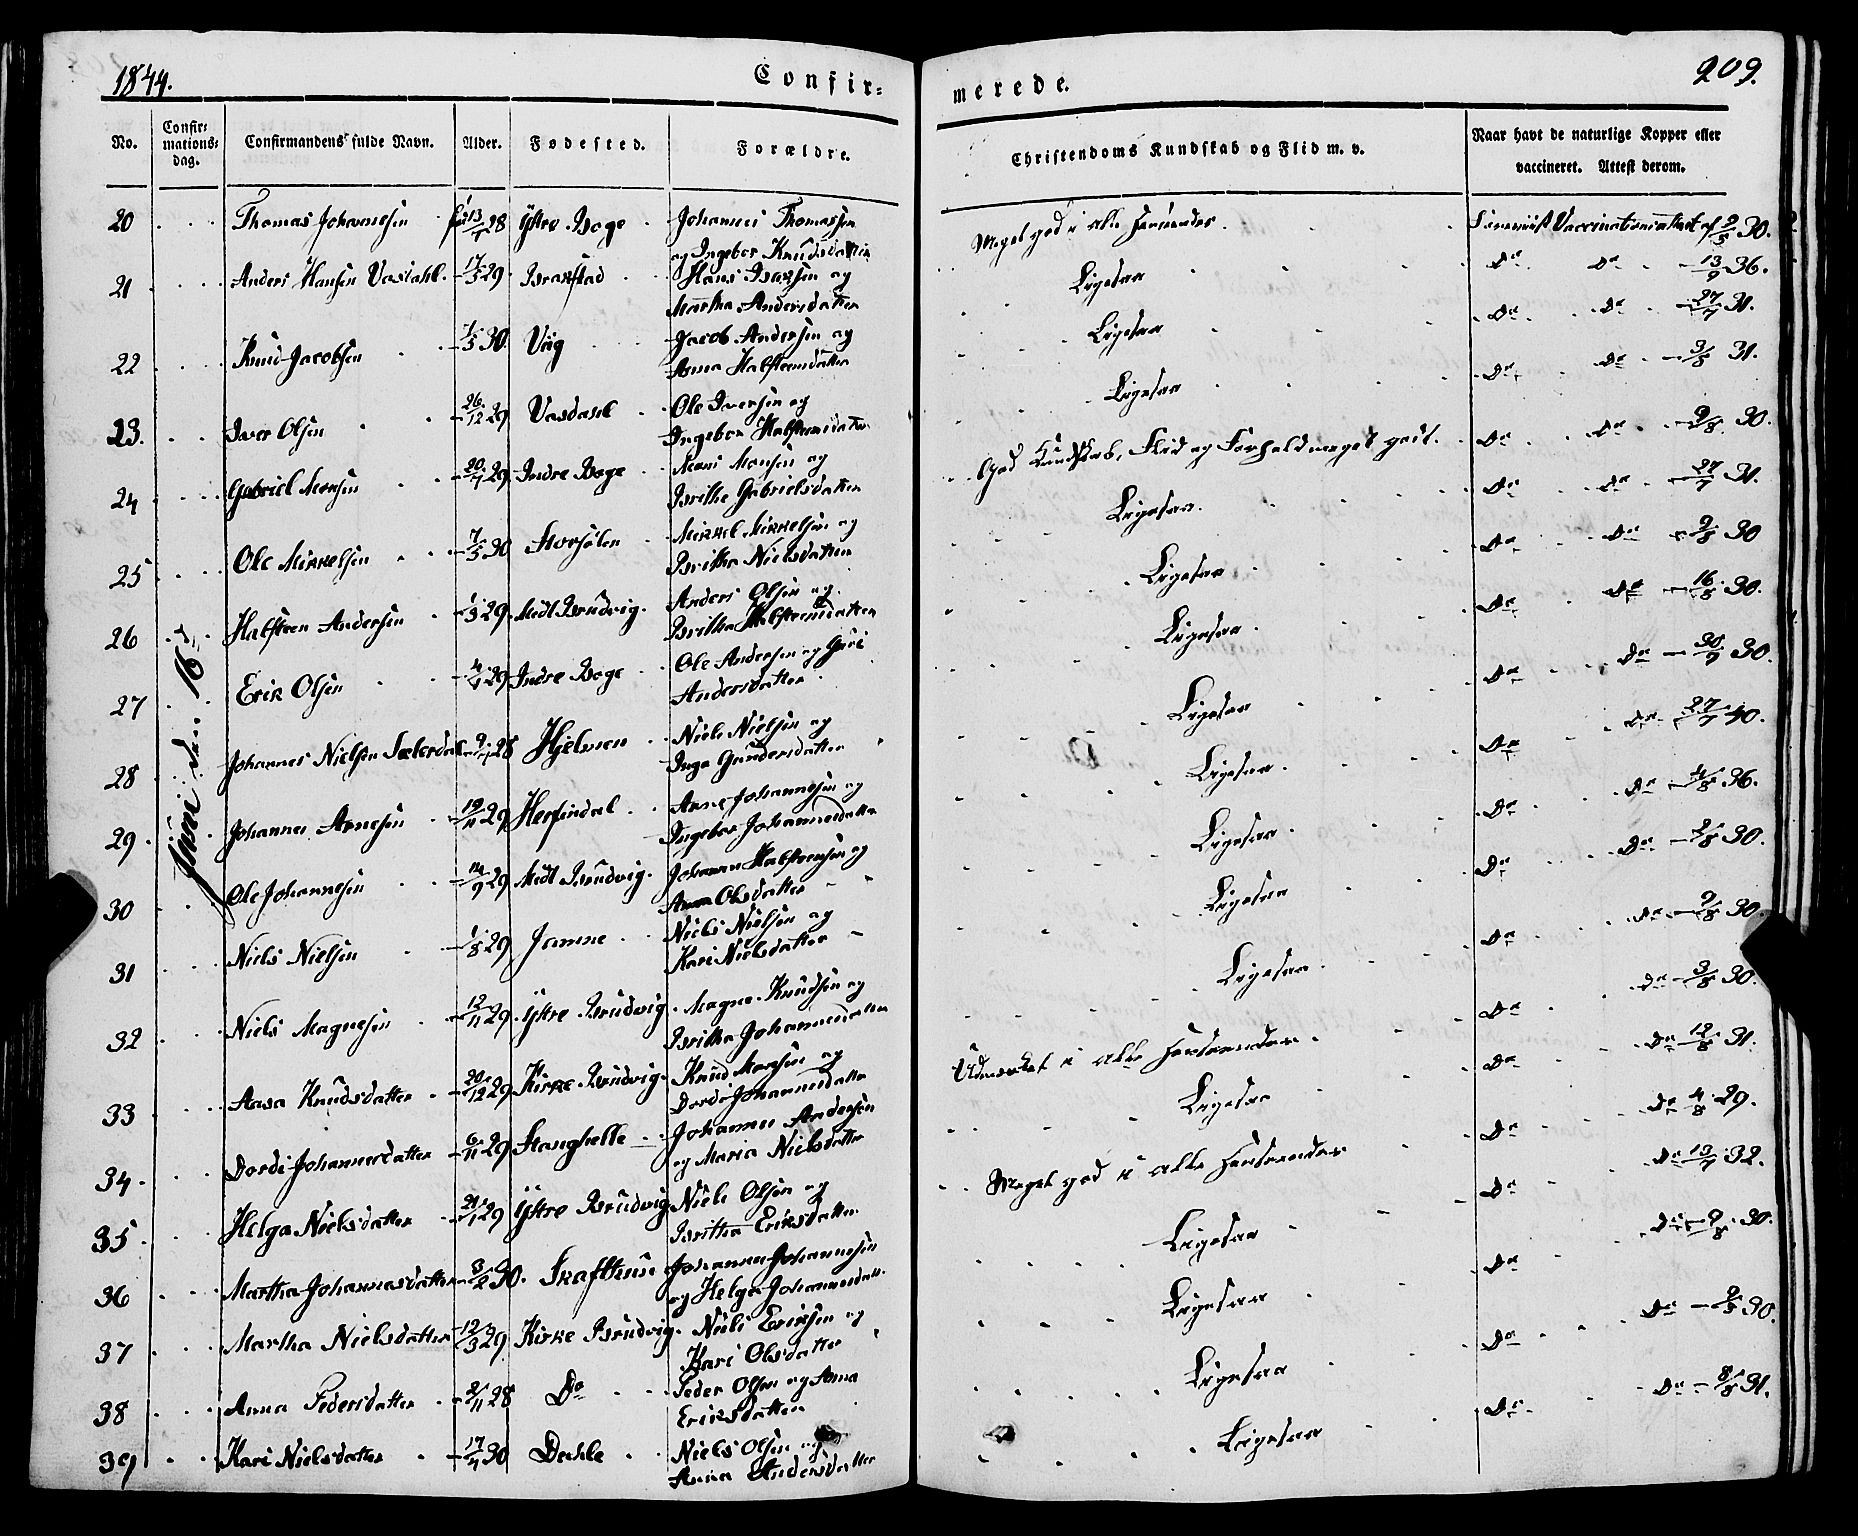 1844.
Confir=
merede.
209.
No.
Confir=
mations=
dag.
Confirmandens fulde Navn.
Alder.
Fødested.
Forældre.
Christendoms Kundskab og Flid m. v.
Naar havt de naturlige Kopper eller
vaccineret. Attest derom.
Juni den 16de
20 Thomas Johannesen 13/1 28 Ystre Boge Johannes Thomassen
og Ingebor Knudsdatter
Meget god i alle Henseender
30.
21 Anders Hansen Vasdahl 17/5 29 Brakstad Hans Brasen og
Martha Andersdatter
Ligesaa
Do Do 13/9 36.
22 Knud Jacobsen 7/5 30 Viig Jacob Andersen og
Anna Halsteensdatter
Ligesaa
Do Do 27/7 31.
23. Iver Olsen 26/12 29 Vasdahl Ole Iversen og
Ingebor Halsteensdatter
Ligesaa
Do Do 3/8 31.
24 Gabriel Monsen 20/7 29 Indre Boge Mons Monsen og
Brithe Gabrielsdatter
God Kundskab, Flid og Forhold meget godt.
Do Do 9/8 30.
25 Ole Mikkelsen 7/5 30 Storsølen Mikkel Mikkelsen og
Britha Nielsdatter
Ligesaa
Do Do 27/7 31.
26 Halsteen Andersen 1/3 29. Midt Brudvig. Anders Olsen og
Britha Halsteensdatter
Ligesaa
Do Do 9/8 30
27 Erik Olsen 4/1 29 Indre Boge Ole Andersen og Guri
Andersdatter
Ligesaa
Do Do 16/8 30.
28 Johannes Nielsen Sæterdal 28 Hjelmen Niels Nielsen og
Inga Gundersdatter
Ligesaa
Do Do 30/9 30.
29 Johannes Arnesen 19/11 29 Herfindal Arne Johannesen og
Ingebor Johannesdatter
Ligesaa
Do Do 27/7 40.
30 Ole Johannesen 14/9 29 Midt Brudvig. Johannes Halsteensen og
Anna Olsdatter
Ligesaa
Do Do 4/8 36.
31 Niels Nielsen 1/8 29 Jamne Niels Nielsen og
Kari Nielsdatter
Ligesaa
Do Do 30.
32 Niels Magnesen 12/11 29 Ystre Brudvig Magne Knudsen og
Britha Johannesdatter
Ligesaa
Do Do 9/8 30.
33 Aasa Knudsdatter 20/12 29 Kirke Brudvig. Knud Monsen og
Dordi Johannesdatter
Udmærket i alle Henseender
Do Do 3/8 30.
34 Dordi Johannesdatter 6/11 29 Stanghelle Johannes Andersen
og Maria Nielsdatter
Ligesaa
Do Do 12/8 31.
35 Helga Nielsdatter 21/1 29 Ystre Brudvig Niels Olsen og
Britha Eriksdatter
Meget god i alle Henseender
Do Do 4/8 29.
36 Martha Johannesdatter 3/2 30. Skafthun Johannes Johannesen
og Helga Johannesdatter
Ligesaa
Do Do 13/7 32.
37 Martha Nielsdatter 12/3 29 Kirke Brudvig. Niels Eriksen og
Kari Olsdatter
Ligesaa
Do Do 9/8 30.
38 Anna Pedersdatter 2/11 28 Do Peder Olsen og Anna
Eriksdatter
Ligesaa
Do Do 30.
39 Kari Nielsdatter 17/4 30 Dahle Niels Olsen og
Anna Andersdatter
Ligesaa
Do Do 8/8 31.